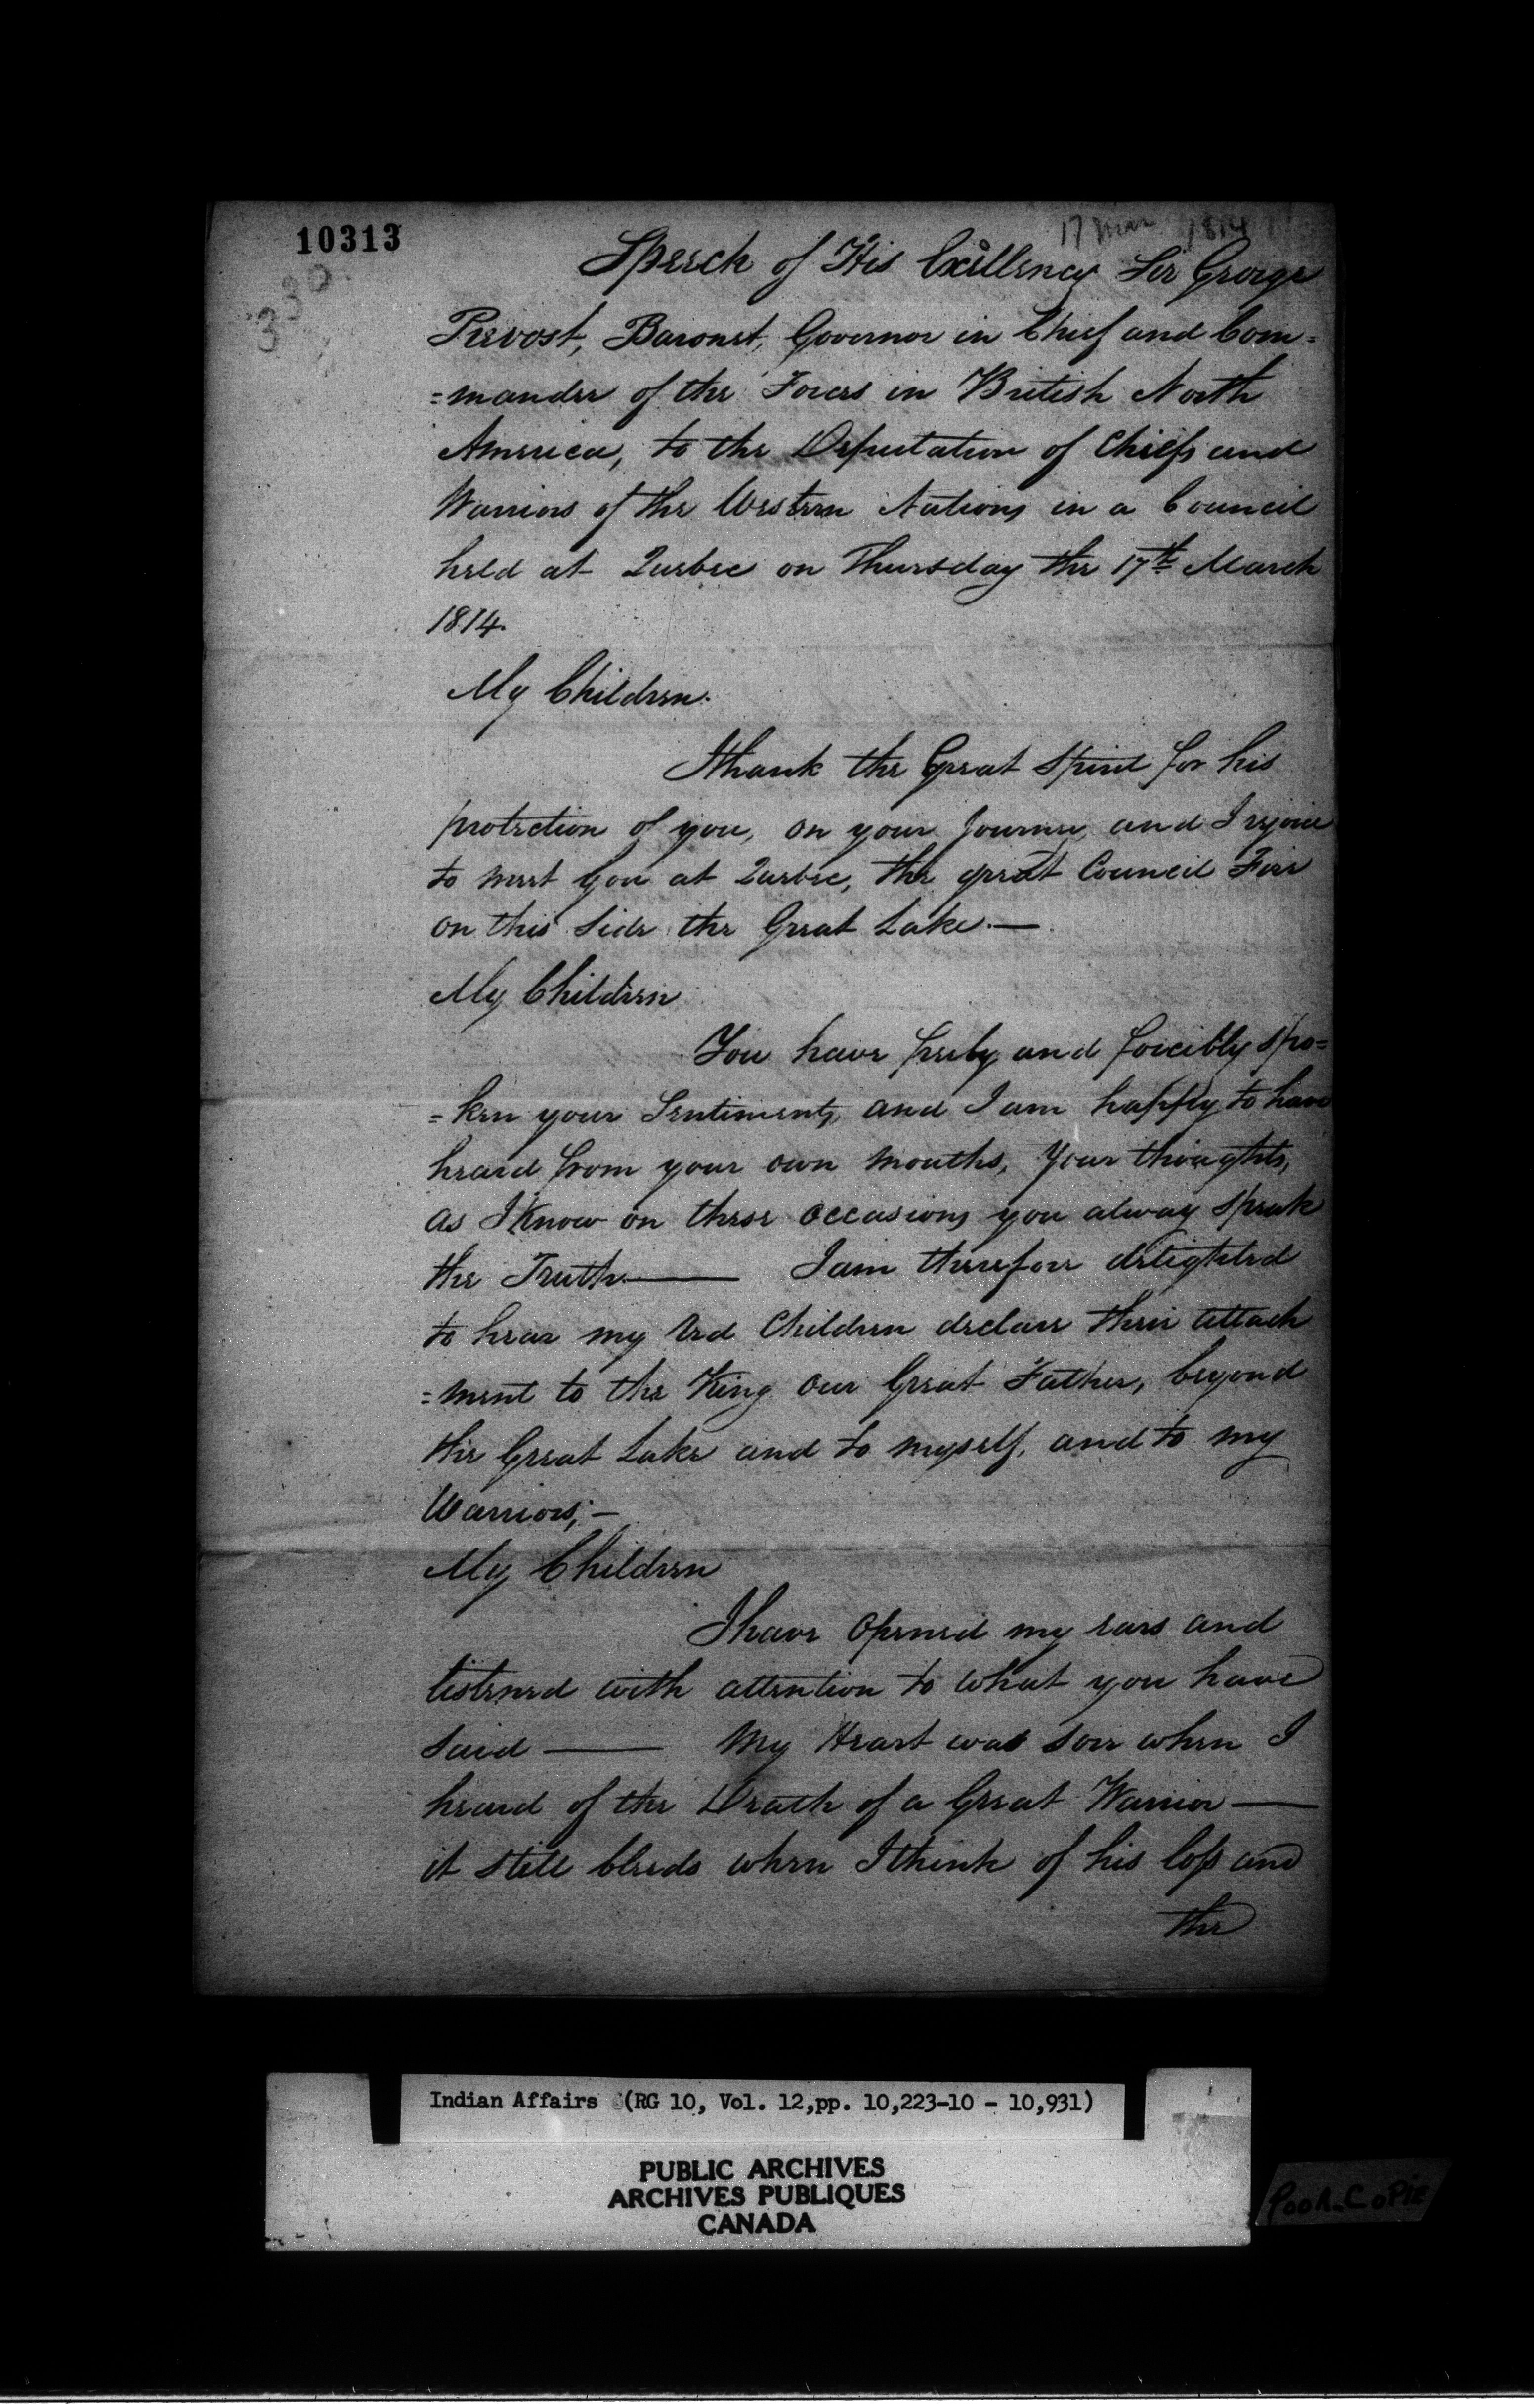 10313
17 Mar 1814
330
Speech of His Excellency Sir George
Prevost, Baronet, Governor in Chief and Com=
=mander of the Forces in British North
America, to the Deputation of Chiefs and
Warriors of the Western Nations in a Council
held at Quebec on Thursday the 17th March
1814.
My Children.
I thank the Great Spirit for his
protection of you, on your Journey, and I rejoice
to meet you at Quebec, the great Council Fire
on this side the Great Lake.—
My Children
You have freely and forcibly spo=
=ken your Sentiments, and I am happy to have
heard from your own Mouths, Your thoughts,
as I Know on these occasions you alway speak
the Truth.— I am therefore delighted
to hear my Red Children declare their attach
=ment to the King our Great Father, beyond
the Great Lake and to myself, and to my
Warriors;—
My Children
I have opened my ears and
listened with attention to what you have
said — My Heart was sore when I
heard of the Death of a Great Warrior —
it still bleeds when I think of his loss and
the
Indian Affairs (RG 10, Vol. 12,pp. 10,223-10 - 10,931)
PUBLIC ARCHIVES
ARCHIVES PUBLIQUES
CANADA
POOR COPIE